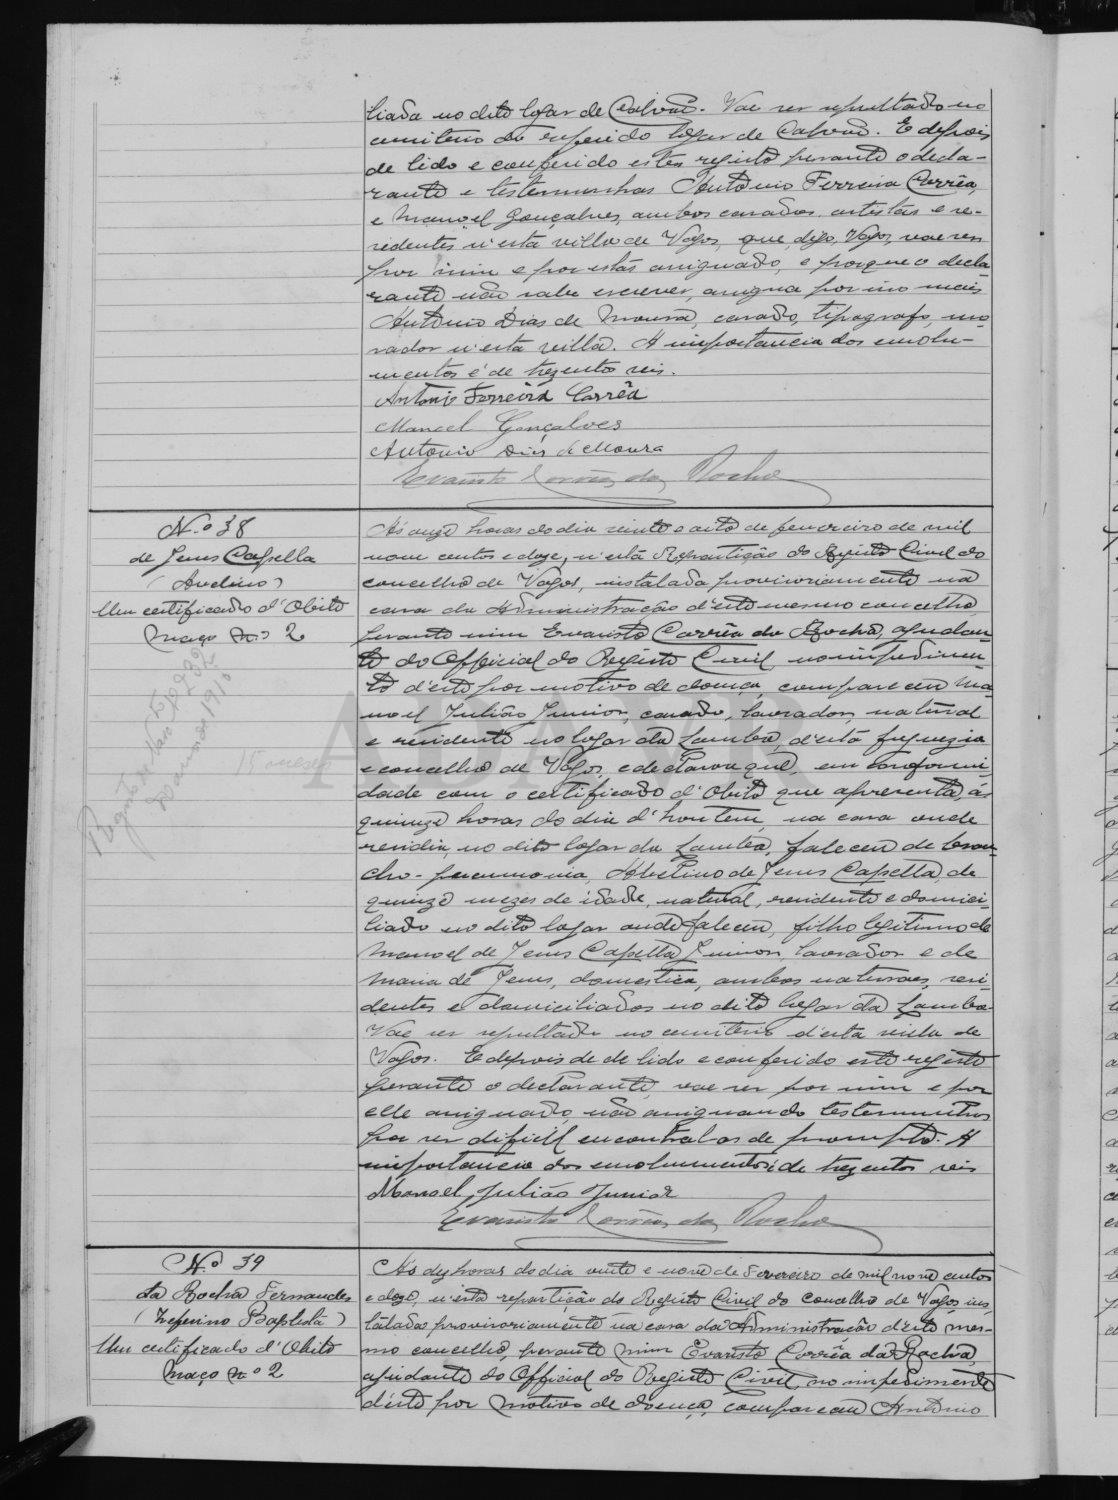 liada no dito logar de Calvão. Vae ser sepultado no
cemiterio do referido logar de Calvão. E depois
de lido e conferido este registo perante o decla-
rante e testemunhas Antonio Ferreira Corrêa
e Manoel Gonçalves, ambos casados, artistas e re-
sidentes n'esta villa de Vagos, que, digo, Vagos, vae ser
por mim e por estas assignado, e porque o decla-
rante não sabe escrever, assigna por isso mais
Antonio Dias de Moura, casado, tipografo, mo-
rador n'esta villa. A importancia dos emolu-
mentos é de trezentos reis.
Antonio Ferreira Corrêa
Manoel Gonçalves
Antonio Dias de Moura
Evaristo Corrêa da Rocha
N.º 38
de Jesus Capella
(Avelino)
Um certificado d'Obito
Maço n.º 2
15 meses
Ás onze horas do dia vinte e oito de fevereiro de mil
nove centos e doze, n'esta Repartição do Registo Civil do
concelho de Vagos, installada provisoriamente na
casa da Administração d'este mesmo concelho,
perante mim Evaristo Corrêa da Rocha, ajudan-
te do Official do Registo Civil no impedimen-
to d'este por motivo de doença, compareceu Ma-
noel Julião Junior, casado, lavrador, natural
e residente no logar da Lomba, d'esta freguezia
e concelho de Vagos, e declarou que, em conformi-
dade com o certificado d'Obito que apresenta, ás
quinze horas do dia d'hontem, na casa onde
residia, no dito logar da Lomba, faleceu de bron-
cho-pneumonia, Avelino de Jesus Capella, de
quinze mezes de idade, natural, residente e domici-
liado no dito logar onde faleceu, filho legitimo de
Manoel de Jesus Capella Junior, lavrador e de
Maria de Jesus, domestica, ambos naturaes, resi-
dentes e domiciliados no dito logar da Lomba.
Vae ser sepultado no cemiterio d'esta villa de
Vagos. E depois de de lido e conferido este registo
perante o declarante, vae ser por mim e por
elle assignado, não assignando testemunhas
por ser dificil encontral-as de prompto. A
importancia dos emolumentos é de trezentos reis
Manoel Julião Junior
Evaristo Corrêa da Rocha
N.º 39
da Rocha Fernandes
(Zeferino Baptista)
Um certificado d'Obito
Maço n.º 2
Ás dez horas do dia vinte e nove de Fevereiro de mil nove centos
e doze, n'esta repartição do Registo Civil do concelho de Vagos ins-
tallada provisoriamente na casa da Administração d'este mes-
mo concelho, perante mim Evaristo Corrêa da Rocha,
ajudante do Official do Registo Civil, no impedimento
d'este por motivo de doença, compareceu Antonio